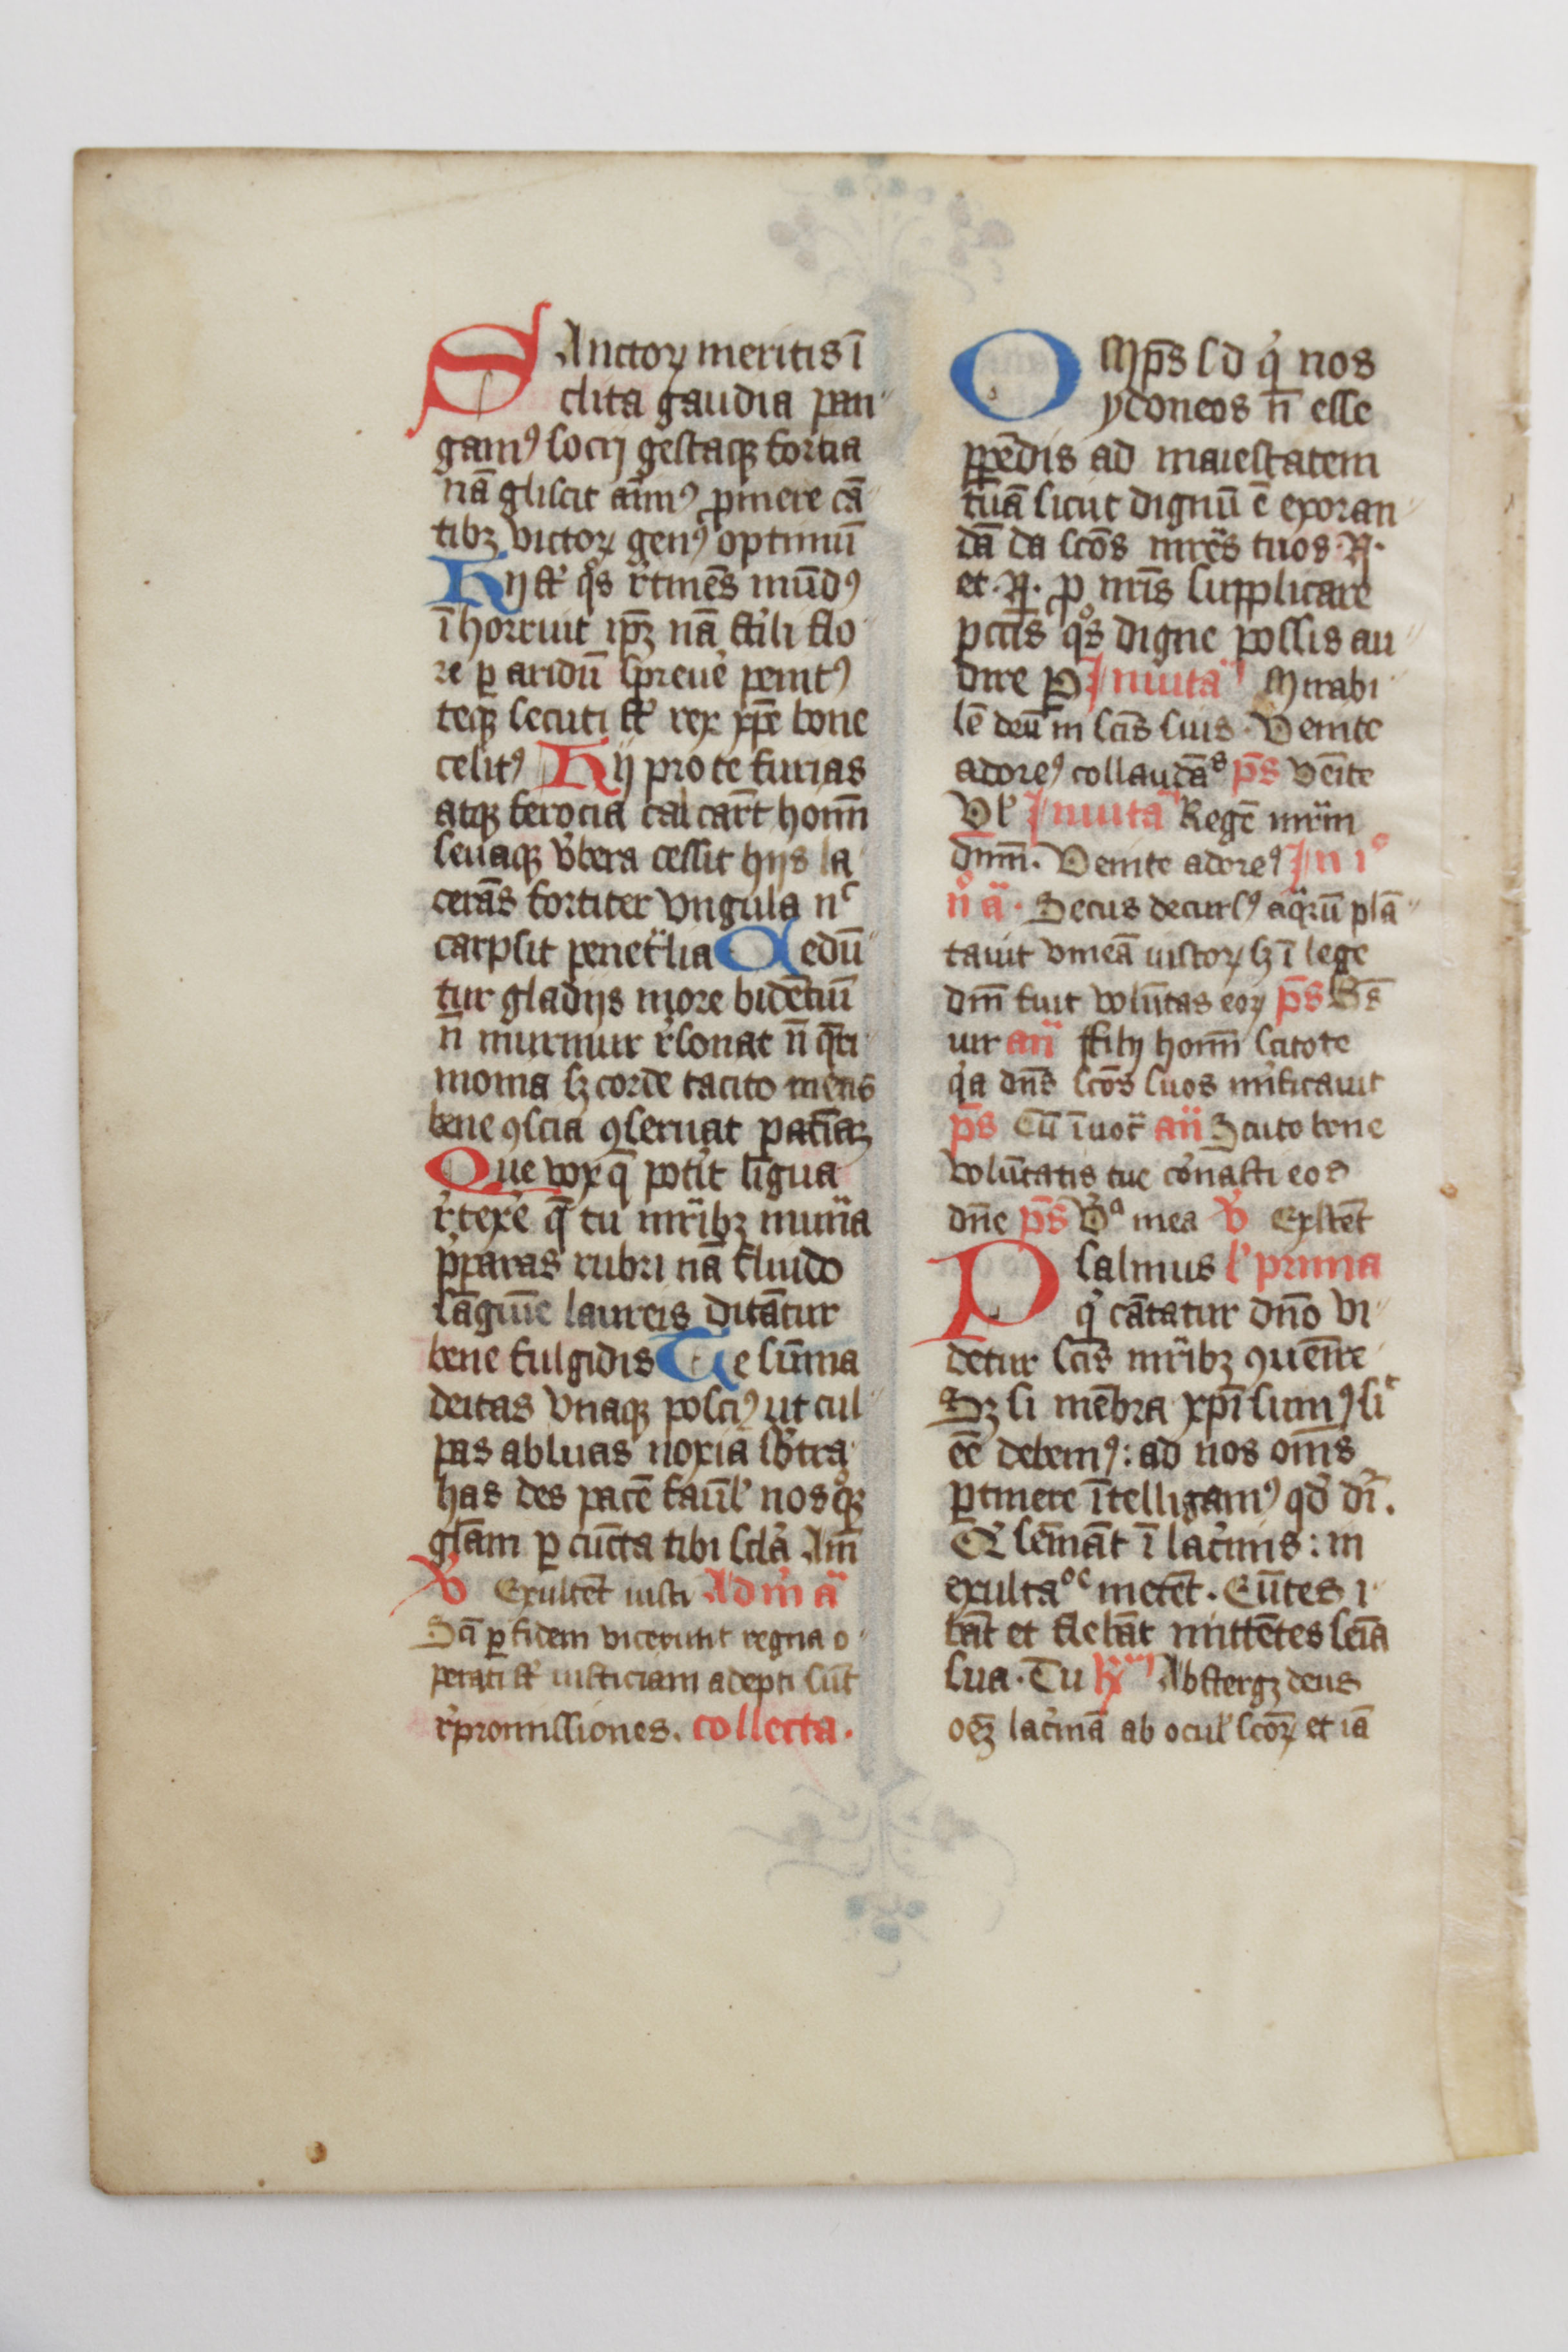 SAnctoꝝ meritis ī
clita gaudia pan
gamꝰ socij gestaqꝫ fortia
nā gliscit aīmꝰ ꝓmere cā
tibꝫ victoꝝ genꝰ optimū
Hij st̄ qͦs r̓tinēs mūdꝰ
ī horruit ip̄ꝫ nā st̓ili flo
re ꝑ aridū sp̄reue̓ penitꝰ
teqꝫ secuti st̄ rex xp̄e bone
celitꝰ Hij pro te furias
atqꝫ ferocia calcar̄t hoīm̄
seuaqꝫ v̓bera cessit hijs la
cerās fortiter vngula nͨ
carpsit penetͣlia Cedū
tur gladijs more bidētiū
n̄ murmur r̓sonat n̄ qͣ̄ri
monia sꝫ corde tacito mens
bene ꝯscia ꝯseruat patīaꝫ
Que vox q̄ potit̓ līgua
r̓texe̓ q̄ tu mrͣ̄ibꝫ mun̓a
p̓paras rubri nā fluido
sāguīe laureis ditātur
bene fulgidis Te sūma
deitas vnaqꝫ poscīꝰ ut cul
pas abluas noxia sb̓tra
has des pacē faūl̓ nosqͦꝫ
gl̄am ꝑ cūcta tibi scl̓a Am̄
V̓ Exultēt iusti Ad m̓ a̓
Scī ꝑ fidem vicerunt regna o
perati st̄ iusticiam adepti sūt
r̓promissiones. collecta.
OMp̄s s d qͥ nos
ydoneos n̄ esse
ꝑpēdis ad maiestatem
tuā sicut dignū ē exoran
dā da scōs mrͣ̄es tuos .N.
et .N. ꝓ nr̄is supplicare
pctīs qͦs digne possis au
dire P Inuita Mirabi
lē deū in scīs suis. Venite
adoreꝰ collaudāˢ p̄s Venite
Vl̓ Inuita Regē mrͣ̄m
dn̄m̄. Venite adoreꝰ In iͦ
nͦ a̓. Secus decursꝰ aqͣrū plā
tauit vineā iustoꝝ sꝫ ī lege
dn̄i fuit volūtas eoꝝ p̄s Bs̄
uir an̄ ffilij hoīm̄ scitote
qͥa dn̄s scōs suos mi̓ficauit
p̄s Cū īuocͣ an̄ Scuto bone
volūtatis tue co̓nasti eos
dn̄e p̄s V̓ª mea V̓ Exltēt
Psalmus l̓ prima
qͥ cātatur dn̄o vi
detur scīs mrͣ̄ibꝫ ꝯuenīre
Sꝫ si mēbra xp̄i sumꝰ siͨ
eē debemꝰ: ad nos oīm̄s
ꝑtinere ītelligamꝰ qd̓ dr̄.
Qͥ semāt ī lacͥmis: in
exultaºᵉ metēt. Eūtes i
bāt et flebāt mittētes seīa
sua. Tu Rm̄ Abstergꝫ deus
oēꝫ lac̓mā ab ocul̓ scōꝝ et iā